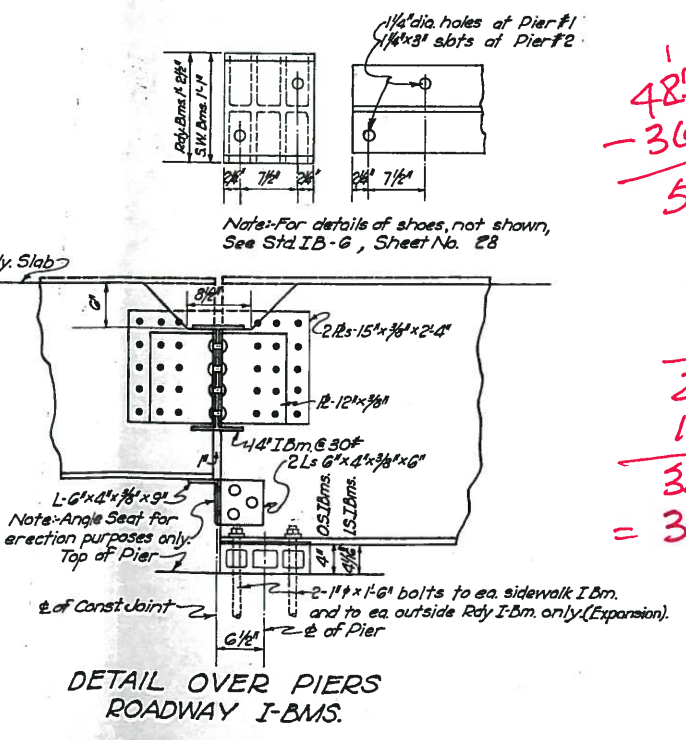 1¼"dia. holes at Pier #1
1¼"x3" slots at Pier #2
Rdy. Bms. 1'-2½"
S.W. Bms. 1'-1"
2¼" 7½" 2¼"
2¼" 7½"
Note:-For details of shoes, not shown,
See Std. IB-6, Sheet No. 28
y. Slab
8½"
6"
2 ℞s-15"x⅜"x2'-4"
℞-12"x⅜"
14" I Bm. @ 30#
1"
2 Ls 6"x4"x⅜"x6"
L-6"x4"x⅜"x9"
Note:-Angle Seat for
erection purposes only.
Top of Pier
O.S. I Bms.
I.S. I Bms.
4"
2-1"φ x 1'-6" bolts to ea. sidewalk I Bm.
and to ea. outside Rdy I-Bm. only. (Expansion).
℄ of Const Joint
6½"
℄ of Pier
DETAIL OVER PIERS
ROADWAY I-BMS.
1
48
-36
5
2
1
3
= 3